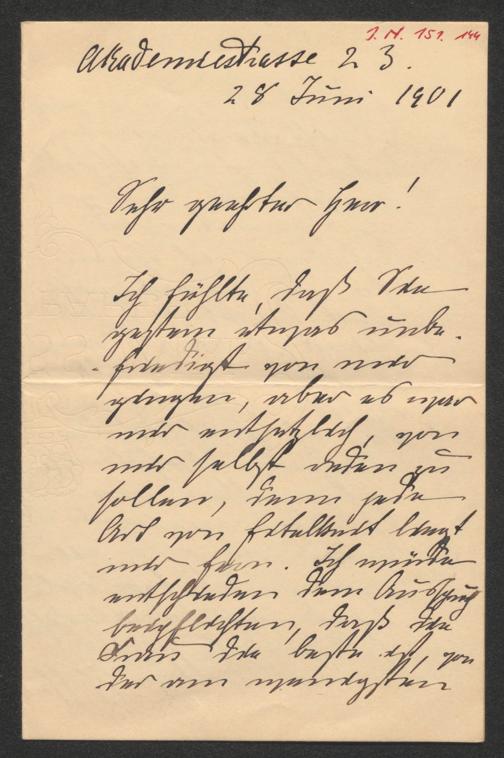 J. N. 151. 144
Akademiestrasse 23.
28 Juni 1901
Sehr geehrter Herr!
Ich fühlte, daß Sie
gestern etwas unbe-
friedigt von mir
gingen, aber es war
mir entsetzlich, von
mir selbst reden zu
sollen, denn jede
Art von Eitelkeit liegt
mir fern. Ich würde
entschieden dem Ausspruch
beipflichten, daß die
Frau die beste ist, von
der am wenigsten